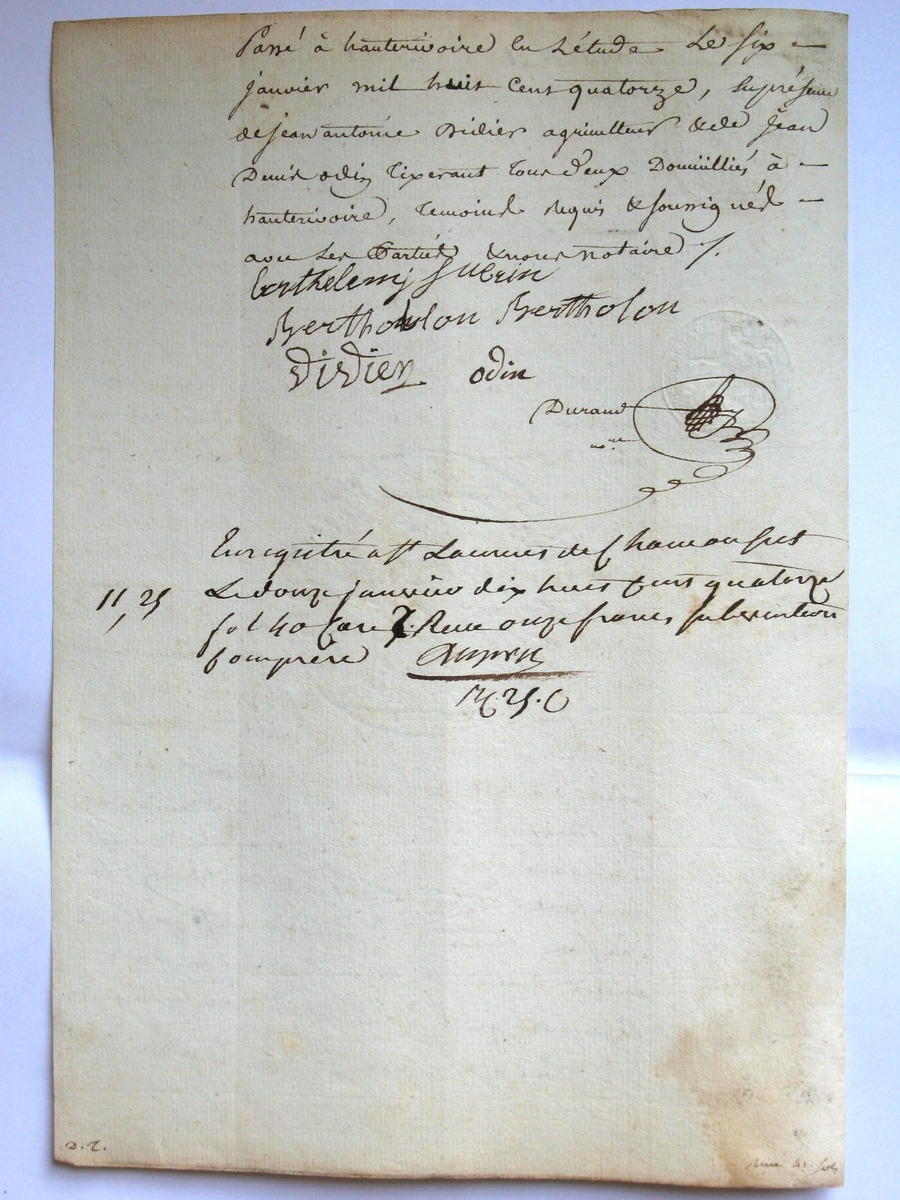 Passé à hauterivoire En Létude Le six
janvier mil huit Cent quatorze, En présence
de jean antoine Didier agriculteur & de Jean
Denis odin tixerant tous deux Domiciliés à
hauterivoire, temoins Requis & soussignés
avec Les Parties & nous notaire ./.
barthelemj
Berthollon Bertholon
Didier odin
Durand
nre
Enregistré a st Laurent de Chamousset
11, 25 Le douze janvier dix huit cent quatorze
fol 40 Case 7. Recu onze francs subvention
Comprise
25. C
D. T.